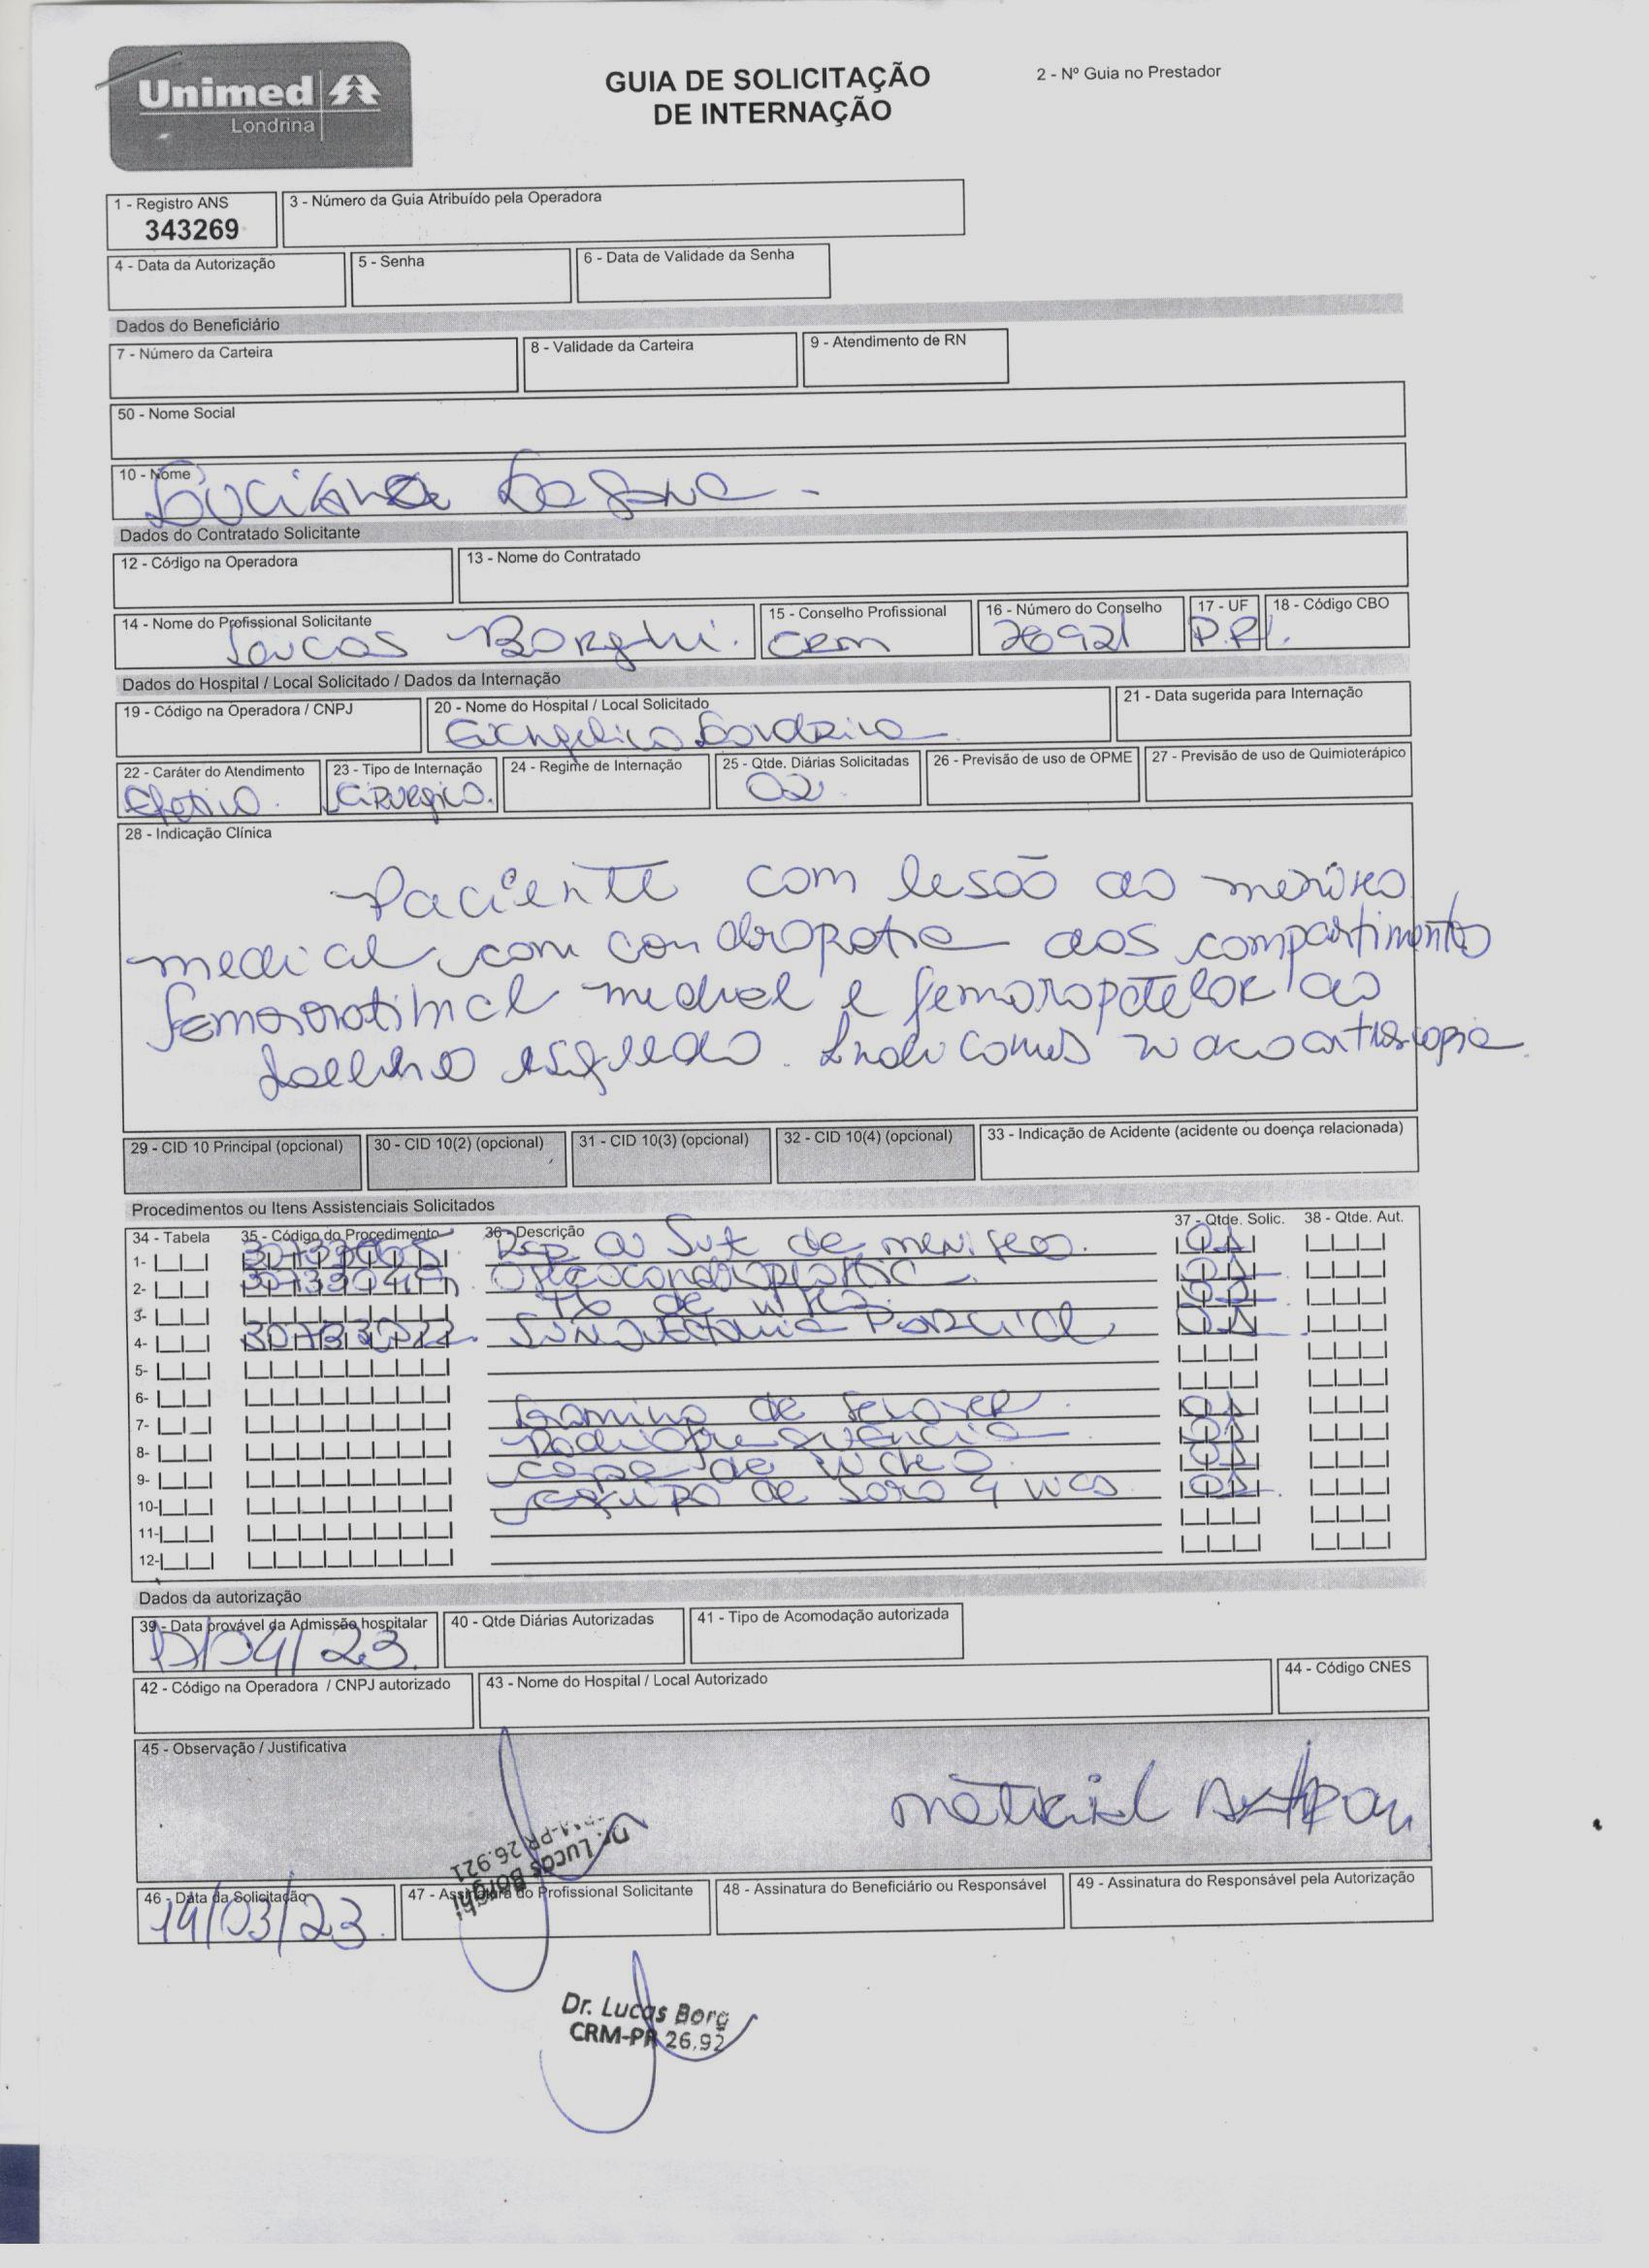 Unimed
Londrina
GUIA DE SOLICITAÇÃO
DE INTERNAÇÃO
2 - Nº Guia no Prestador
1 - Registro ANS
343269
3 - Número da Guia Atribuído pela Operadora
4 - Data da Autorização
5 - Senha
6 - Data de Validade da Senha
Dados do Beneficiário
7 - Número da Carteira
8 - Validade da Carteira
9 - Atendimento de RN
50 - Nome Social
10 - Nome
Luciana
Dados do Contratado Solicitante
12 - Código na Operadora
13 - Nome do Contratado
14 - Nome do Profissional Solicitante
Lucas Borghi.
15 - Conselho Profissional
CRM
16 - Número do Conselho
26921
17 - UF
PR
18 - Código CBO
Dados do Hospital / Local Solicitado / Dados da Internação
19 - Código na Operadora / CNPJ
20 - Nome do Hospital / Local Solicitado
Evangelico Londrina
21 - Data sugerida para Internação
22 - Caráter do Atendimento
Eletivo.
23 - Tipo de Internação
Cirurgico.
24 - Regime de Internação
25 - Qtde. Diárias Solicitadas
02
26 - Previsão de uso de OPME
27 - Previsão de uso de Quimioterápico
28 - Indicação Clínica
Paciente com lesão ao menisco
medial com condropatia aos compartimentos
femorotibial medial e femoropatelar ao
joelho esquerdo. Indicamos videoartroscopia.
29 - CID 10 Principal (opcional)
30 - CID 10(2) (opcional)
31 - CID 10(3) (opcional)
32 - CID 10(4) (opcional)
33 - Indicação de Acidente (acidente ou doença relacionada)
Procedimentos ou Itens Assistenciais Solicitados
34 - Tabela
35 - Código do Procedimento
36 - Descrição
37 - Qtde. Solic.
38 - Qtde. Aut.
1- Sut de menisco. 01
2- Osteocondroplastia
3-
4- Sinovectomia Parcial 01
5-
6-
7- Lamina de Shaver. 01
8- Radiofrequencia 01
9- capa de video 01
10- equipo de soro 4 vias 01
11-
12-
Dados da autorização
39 - Data provável da Admissão hospitalar
/04/23
40 - Qtde Diárias Autorizadas
41 - Tipo de Acomodação autorizada
42 - Código na Operadora / CNPJ autorizado
43 - Nome do Hospital / Local Autorizado
44 - Código CNES
45 - Observação / Justificativa
material
Dr. Lucas Borghi
CRM-PR 26.921
46 - Data da Solicitação
14/03/23.
47 - Assinatura do Profissional Solicitante
48 - Assinatura do Beneficiário ou Responsável
49 - Assinatura do Responsável pela Autorização
Dr. Lucas Borg
CRM-PR 26.92